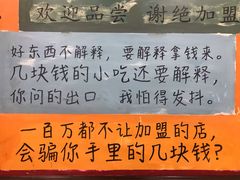 欢迎品尝 谢绝加盟
好东西不解释，要解释拿钱来。
几块钱的小吃还要解释，
你问的出口 我怕得发抖。
一百万都不让加盟的店，
会骗你手里的几块钱？